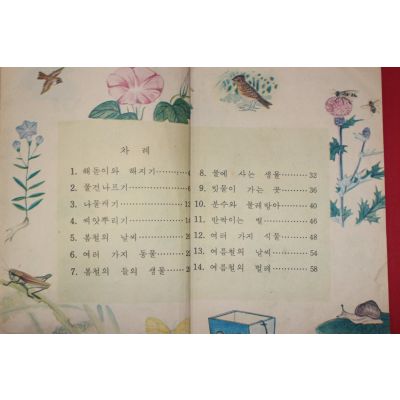 차 례
1. 해돋이와 해지기
2. 물건나르기
3. 나물캐기
4. 씨앗뿌리기
5. 봄철의 날씨
6. 여러 가지 동물
7. 봄철의 들의 생물
8. 물에 사는 생물 32
9. 빗물이 가는 곳 36
10. 분수와 물레방아 40
11. 반짝이는 별 46
12. 여러 가지 식물 48
13. 여름철의 날씨 54
14. 여름철의 벌레 58